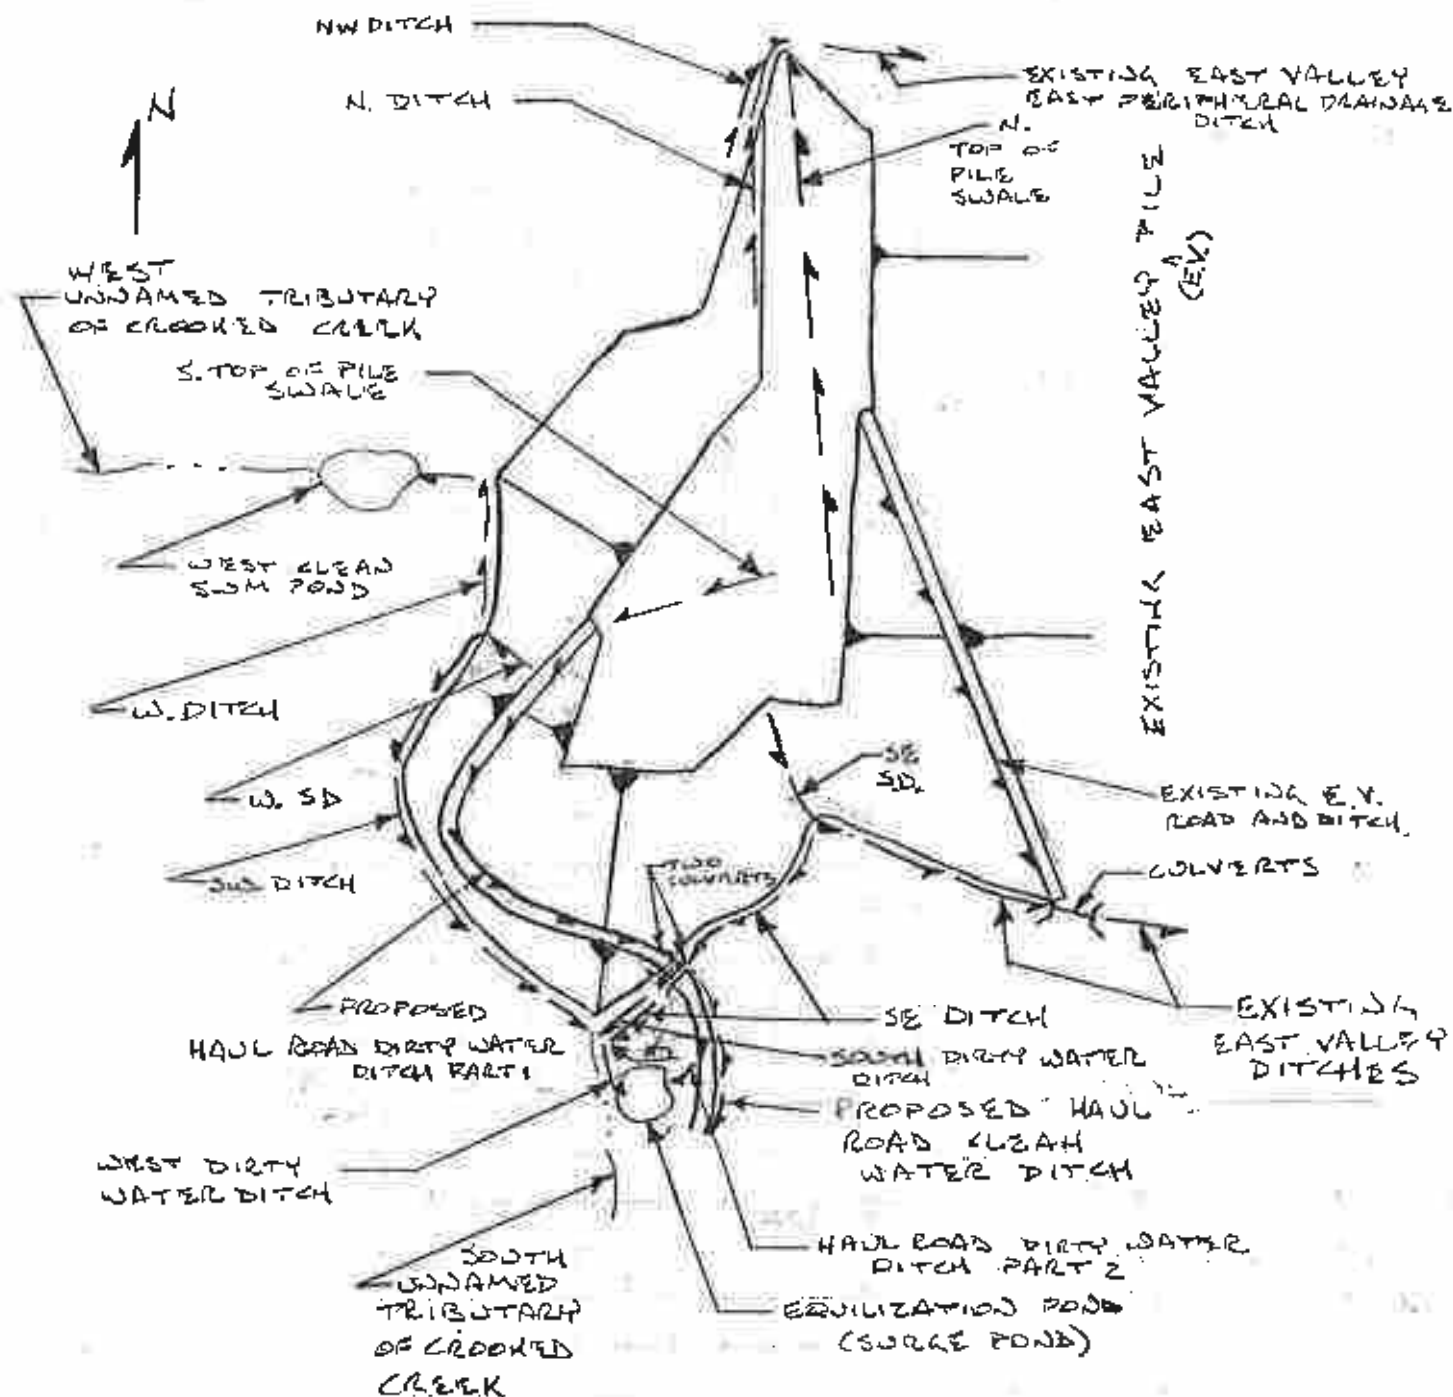 NW DITCH
N. DITCH
N
EXISTING EAST VALLEY
EAST PERIPHERAL DRAINAGE
DITCH
N.
TOP OF
PILE
SWALE
EXISTING EAST VALLEY PILE
(E.V.)
WEST
UNNAMED TRIBUTARY
OF CROOKED CREEK
S. TOP OF PILE
SWALE
WEST CLEAN
SWM POND
W. DITCH
W. SD
SW DITCH
SE
SD.
EXISTING E.V.
ROAD AND DITCH.
TWO
CULVERTS
CULVERTS
PROPOSED
HAUL ROAD DIRTY WATER
DITCH PART 1
SE DITCH
SOUTH DIRTY WATER
DITCH
EXISTING
EAST VALLEY
DITCHES
PROPOSED HAUL
ROAD CLEAN
WATER DITCH
WEST DIRTY
WATER DITCH
HAUL ROAD DIRTY WATER
DITCH PART 2
SOUTH
UNNAMED
TRIBUTARY
OF CROOKED
CREEK
EQUILIZATION POND
(SURGE POND)